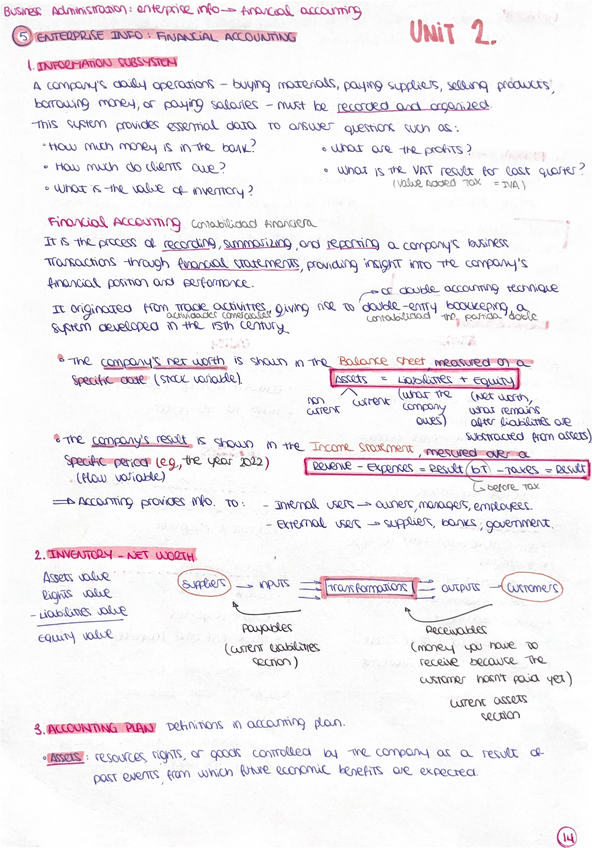 Business Administration: enterprise info → financial accounting
⑤ ENTERPRISE INFO: FINANCIAL ACCOUNTING
UNIT 2.
1. INFORMATION SUBSYSTEM
A company's daily operations - buying materials, paying suppliers, selling products,
borrowing money, or paying salaries - must be recorded and organized.
This system provides essential data to answer questions such as:
• How much money is in the bank?
• What are the profits?
• How much do clients owe?
• What is the VAT result for last quarter?
(Value Added Tax = IVA)
• What is the value of inventory?
Financial Accounting contabilidad financiera
It is the process of recording, summarizing, and reporting a company's business
transactions through financial statements, providing insight into the company's
financial position and performance.
or double accounting technique
It originated from trade activities, giving rise to double-entry bookkeeping, a
actividades comerciales
contabilidad de partida doble
system developed in the 15th century
• The company's net worth is shown in the Balance sheet, measured on a
specific date (stock variable).
Assets = Liabilities + Equity
non current
current
(what the company owes)
(Net worth, what remains after liabilities are substracted from assets)
• The company's result is shown in the Income Statement, mesured over a
specific period (e.g., the year 2022)
(flow variable)
Revenue - Expenses = Result (BT) - Taxes = Result
before tax
⇒ Accounting provides info. to:
- Internal users → owners, managers, employees.
- External users → suppliers, banks, government.
2. INVENTORY - NET WORTH
Assets value
Rights value
- Liabilities value
Equity value
Suppliers → INPUTS → Transformations → OUTPUTS → Customers
Payables
(current liabilities
section)
Receivables
(money you have to
receive because the
customer hasn't paid yet)
current assets
section
3. ACCOUNTING PLAN Definitions in accounting plan.
• Assets: resources, rights, or goods controlled by the company as a result of
past events, from which future economic benefits are expected.
14